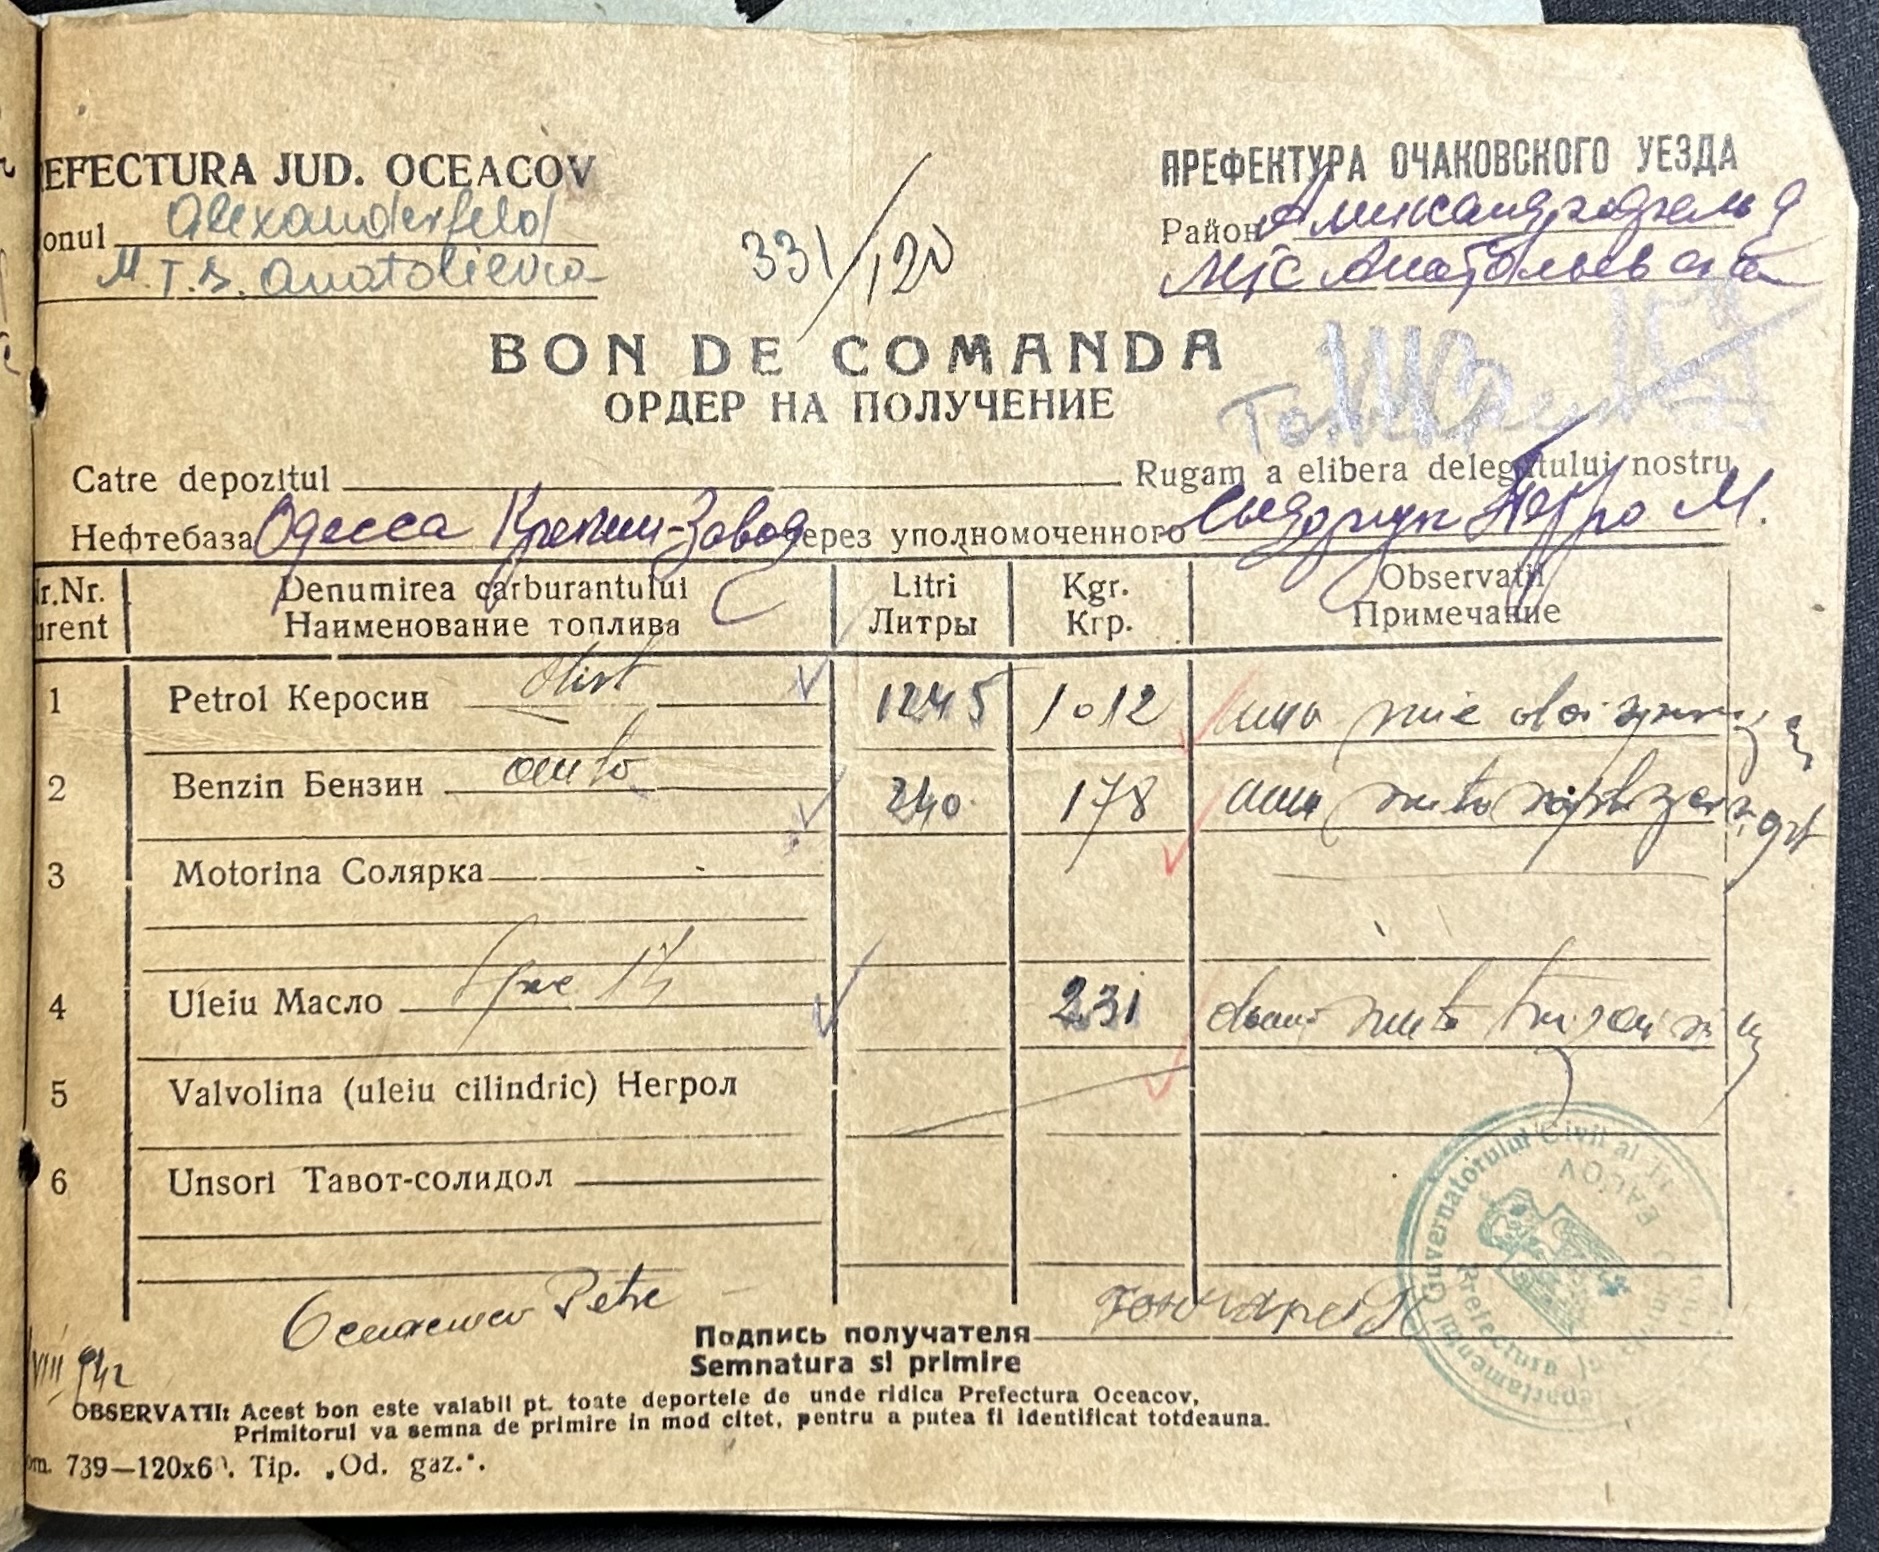 EFECTURA JUD. OCEACOV
ПРЕФЕКТУРА ОЧАКОВСКОГО УЕЗДА
onul Alexanderfeld
Район
M.T.S. Anatolievca
МТС Анатольевская
331/120
BON DE COMANDA
ОРДЕР НА ПОЛУЧЕНИЕ
Catre depozitul Rugam a elibera delegatului nostru
Нефтебаза Одесса Крекинг-Завод через уполномоченного Петро М.
r.Nr. Denumirea carburantului Litri Kgr. Observații
urent Наименование топлива Литры Кгр. Примечание
1 Petrol Керосин dist 1245 1012 una mie
2 Benzin Бензин auto 240 178 una suta
3 Motorina Солярка
4 Uleiu Масло 231 doua sute
5 Valvolina (uleiu cilindric) Негрол
6 Unsori Тавот-солидол
Petre
Подпись получателя
Semnatura si primire
VIII 942
OBSERVATII: Acest bon este valabil pt. toate deportele de unde ridica Prefectura Oceacov,
Primitorul va semna de primire in mod citet, pentru a putea fi identificat totdeauna.
om. 739—120x6 . Tip. „Od. gaz.".
Guvernatorului Civil al
Prefectura